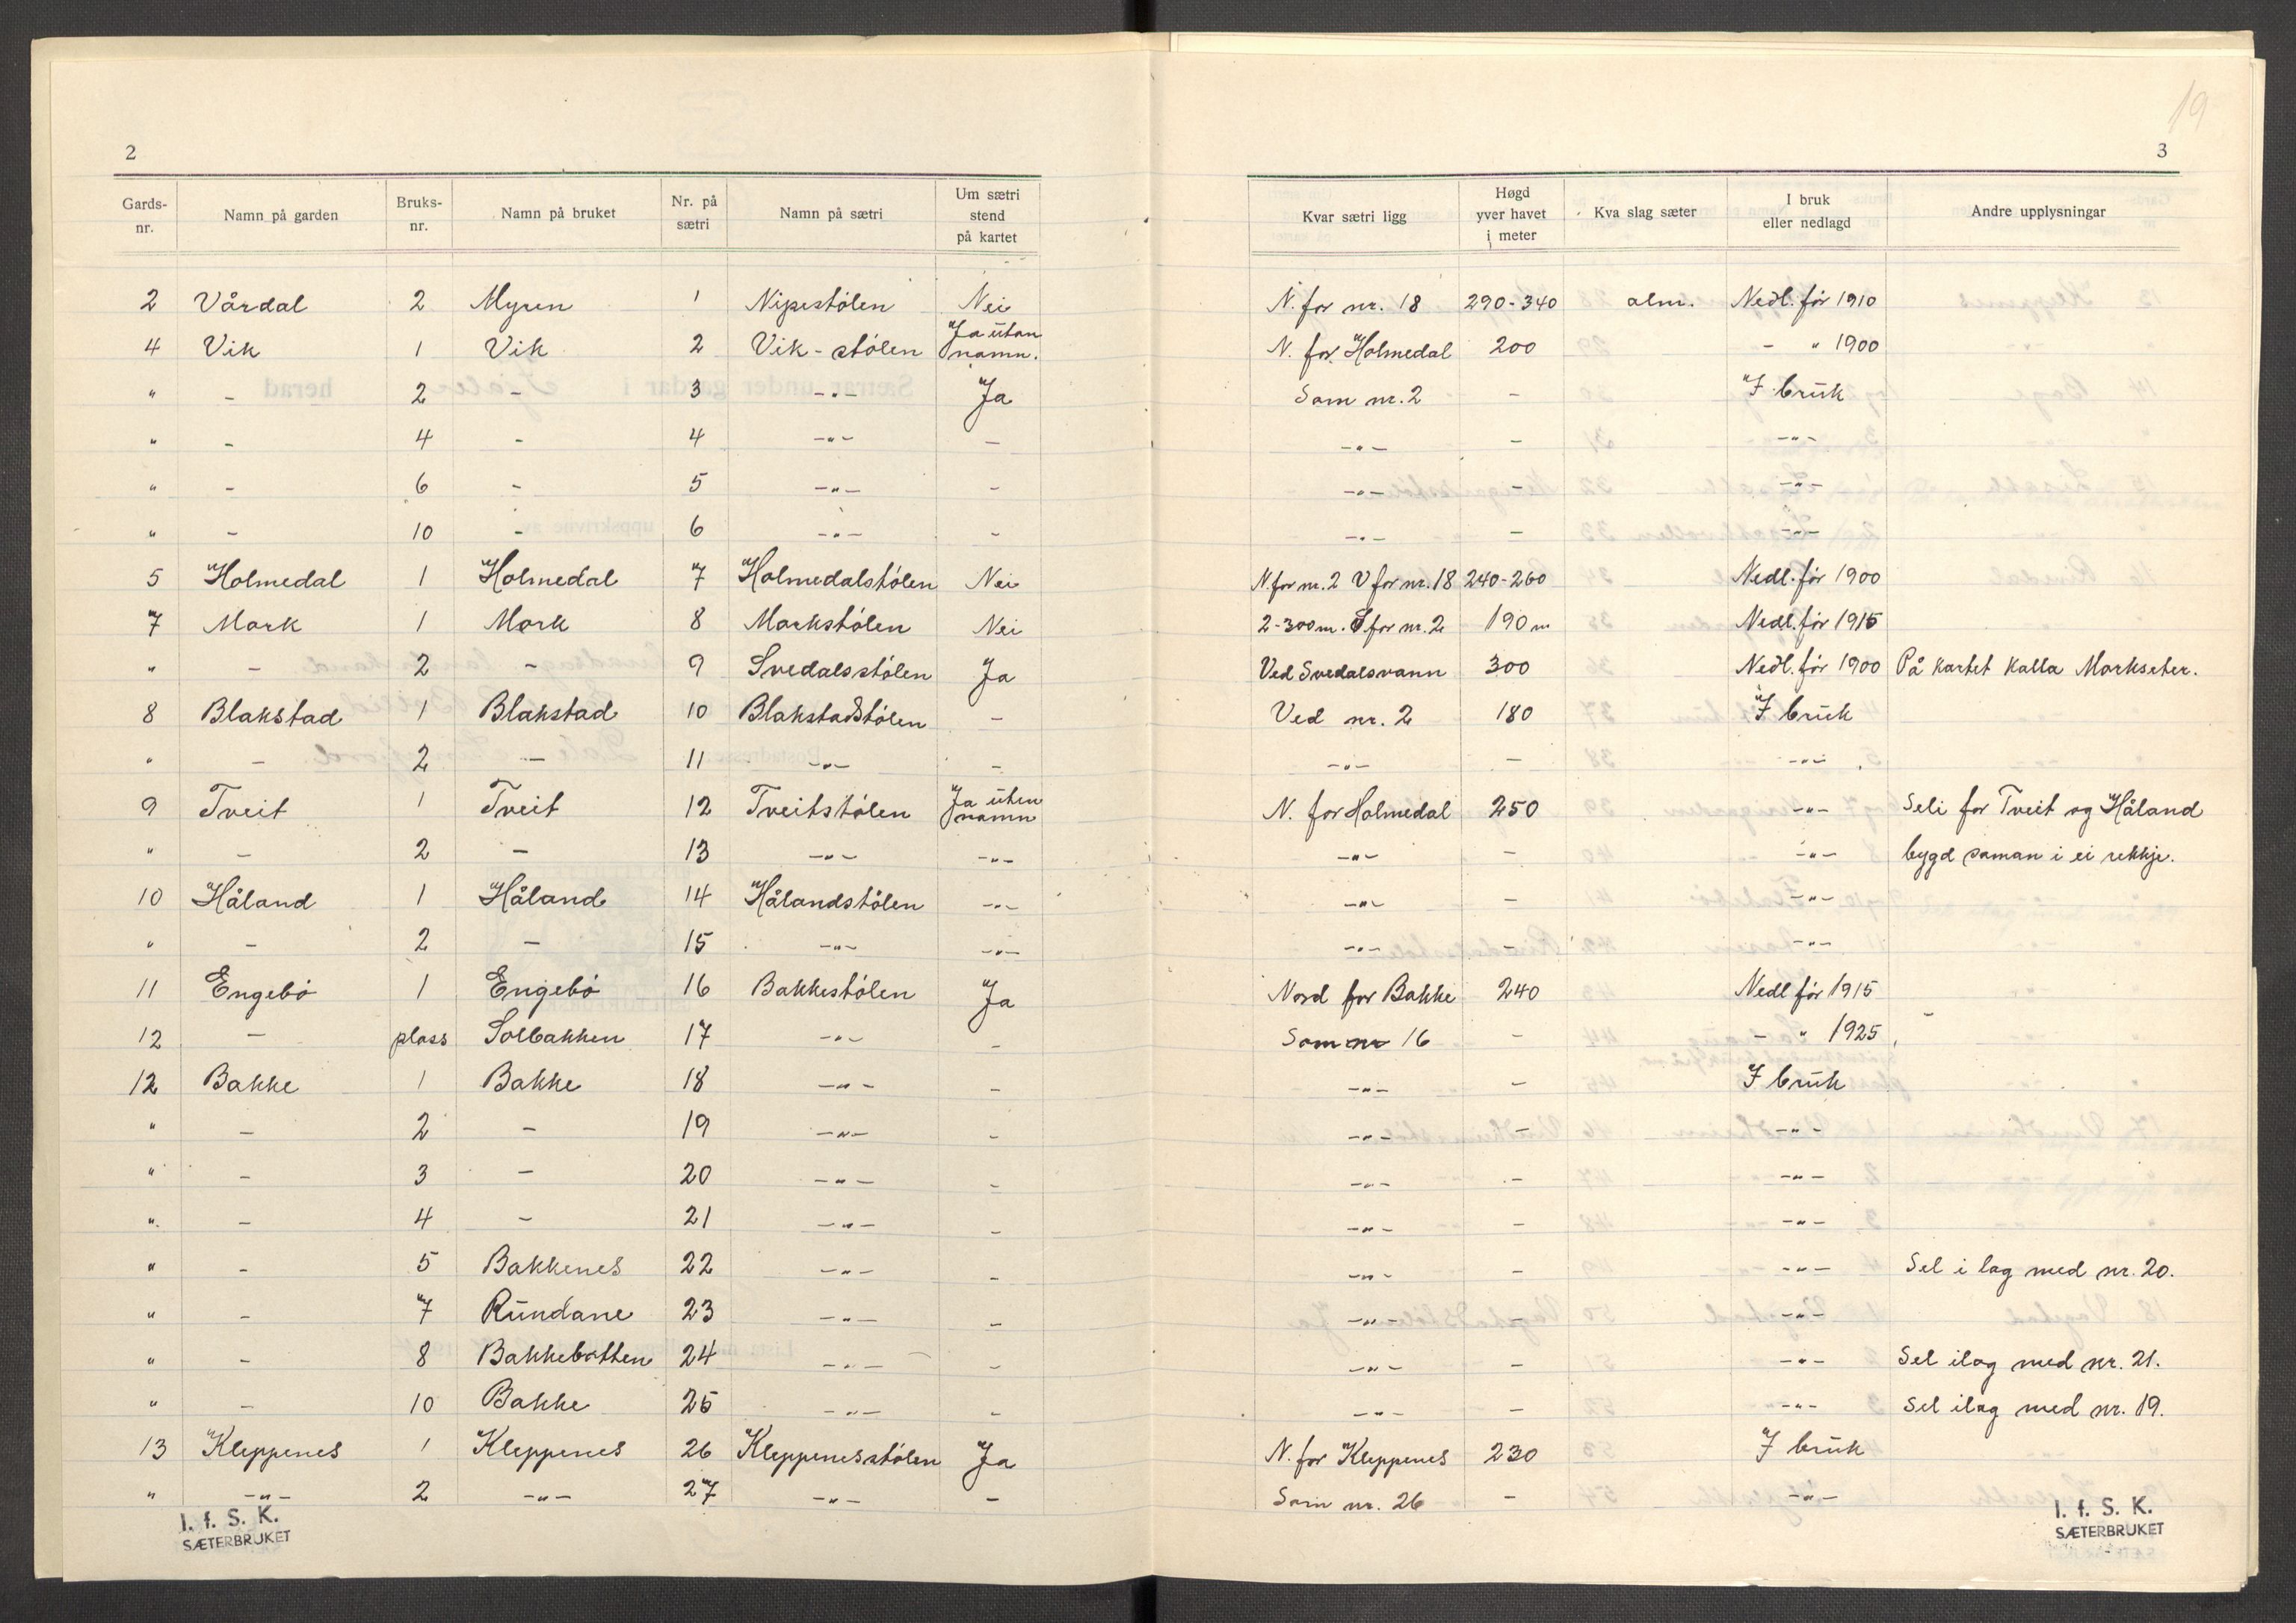 19
2
3
Gards-nr. | Namn på garden | Bruks-nr. | Namn på bruket | Nr. på sætri | Namn på sætri | Um sætri stend på kartet | Kvar sætri ligg | Høgd yver havet i meter | Kva slag sæter | I bruk eller nedlagd | Andre upplysningar
2 | Vårdal | 2 | Myren | 1 | Nipestölen | Nei | N. for nr. 18 | 290-340 | alm. | Nedl. för 1910
4 | Vik | 1 | Vik | 2 | Vik-stölen | Ja utan namn. | N. for Holmedal | 200 | | - " 1900
" | - | 2 | - | 3 | -"- | Ja | Som nr. 2 | - | | I bruk
" | - | 4 | - | 4 | -"- | - | -"- | - | | -"-
" | - | 6 | - | 5 | -"- | - | -"- | - | | -"-
" | - | 10 | - | 6 | -"- | - | -"- | - | | -"-
5 | Holmedal | 1 | Holmedal | 7 | Holmedalstölen | Nei | N. for nr. 2 V for nr. 18 | 240-260 | | Nedl. för 1900
7 | Mork | 1 | Mork | 8 | Morkstölen | Nei | 2-300 m. S for nr. 2 | 190 m | | Nedl. för 1915
" | - | 2 | - | 9 | Svedalsstölen | Ja | Ved Svedalsvann | 300 | | Nedl. för 1900 | På kartet kalla Morkseter.
8 | Blakstad | 1 | Blakstad | 10 | Blakstadstölen | - | Ved nr. 2 | 180 | | I bruk
" | - | 2 | - | 11 | -"- | - | -"- | - | | -"-
9 | Tveit | 1 | Tveit | 12 | Tveitstölen | Ja uten namn | N. for Holmedal | 250 | | -"- | Seli for Tveit og Håland
" | - | 2 | - | 13 | -"- | -"- | -"- | - | | -"- | bygd saman i ei rekkje.
10 | Håland | 1 | Håland | 14 | Hålandstölen | -"- | -"- | - | | -"-
" | - | 2 | - | 15 | -"- | -"- | -"- | - | | -"-
11 | Engebö | 1 | Engebö | 16 | Bakkestölen | Ja | Nord for Bakke | 240 | | Nedl för 1915
12 | - | plass | Solbakken | 17 | -"- | - | Som nr 16 | - | | - " 1925
12 | Bakke | 1 | Bakke | 18 | -"- | - | -"- | - | | I bruk
" | - | 2 | - | 19 | -"- | - | -"- | - | | -"-
" | - | 3 | - | 20 | -"- | - | -"- | - | | -"-
" | - | 4 | - | 21 | -"- | - | -"- | - | | -"-
" | - | 5 | Bakkenes | 22 | -"- | - | -"- | - | | -"- | Sel i lag med nr. 20.
" | - | 7 | Rundane | 23 | -"- | - | -"- | - | | -"-
" | - | 8 | Bakkebotten | 24 | -"- | - | -"- | - | | -"- | Sel ilag med nr. 21.
" | - | 10 | Bakke | 25 | -"- | - | -"- | - | | -"- | Sel ilag med nr. 19.
13 | Kleppenes | 1 | Kleppenes | 26 | Kleppenesstölen | Ja | N. for Kleppenes | 230 | | I bruk
" | -"- | 2 | -"- | 27 | -"- | - | Som nr. 26 | - | | -"-
I. f. S. K.
SÆTERBRUKET
I. f. S. K.
SÆTERBRUKET